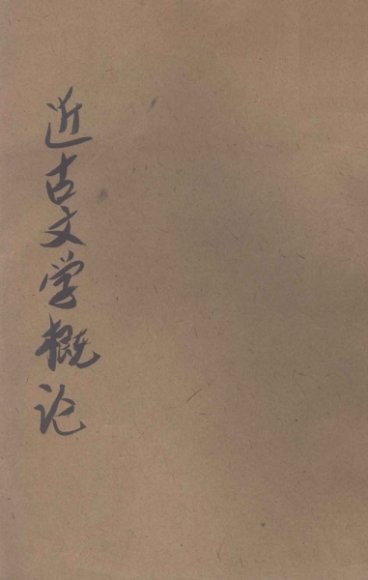 近古文学概论